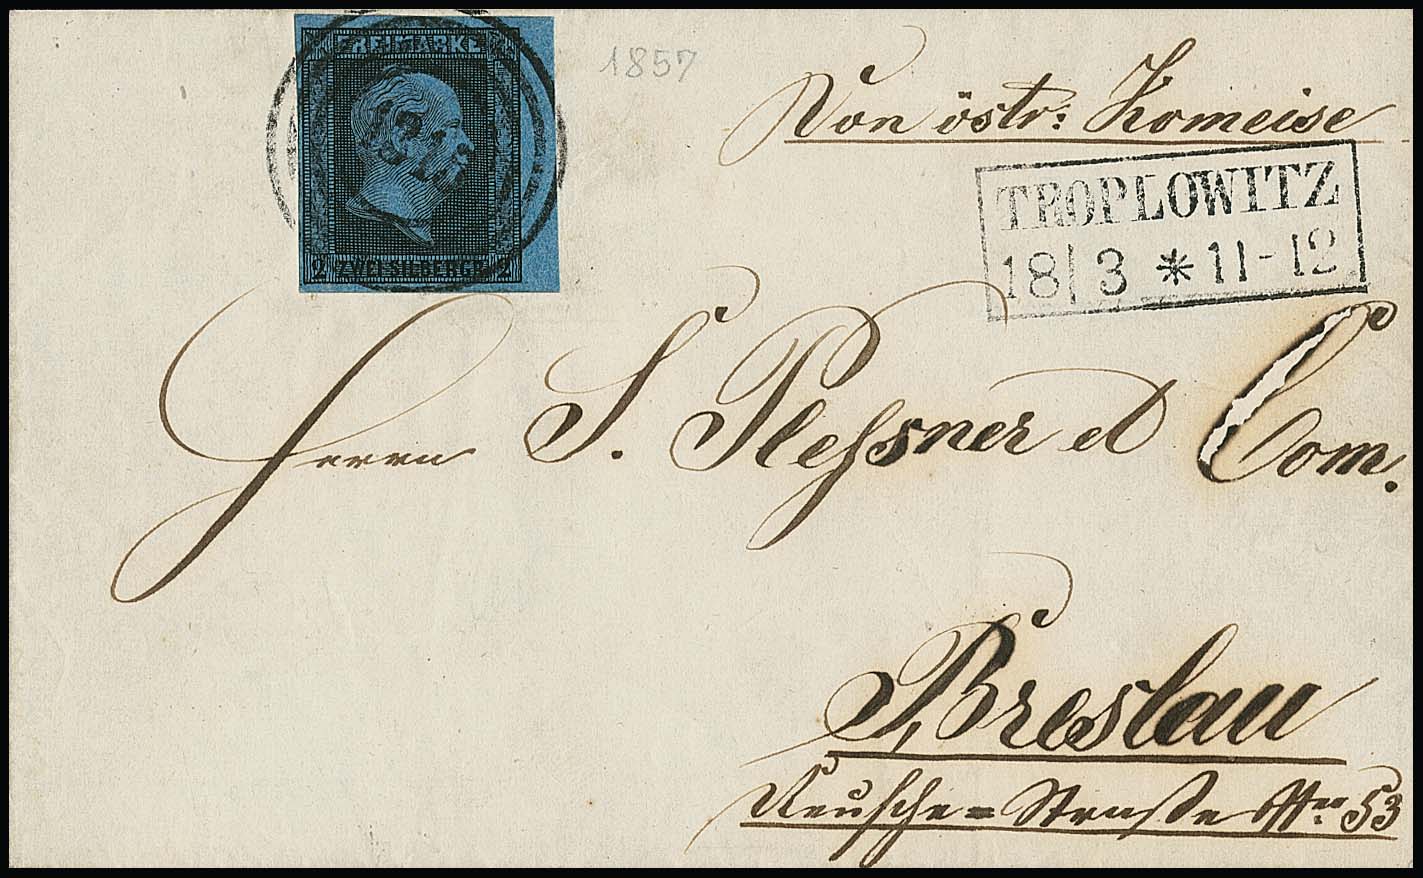 FREIMARKE
2 ZWEI SILBERGR. 2
1857
Von östr: Komeise
TROPLOWITZ
18|3 * 11-12
Herrn S. Plessner et Com.
Breslau
Reusche=Straße No. 53